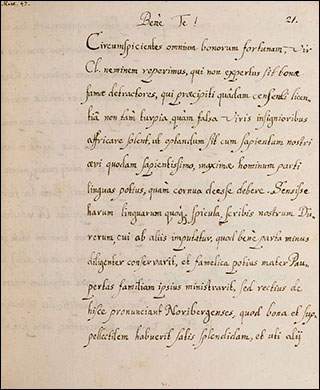 Benè Te!
21.
Circumspicientes omnium bonorum fortunam, Vir
Cl. neminem reperimus, qui non expertus sit bonæ
famæ detractores, qui præcipiti quâdam censendi licen
tiâ non tàm turpia quam falsa Viris insignioribus
affricare solent, ut optandum sit cum sapientum nostri
ævi quodam sapientissimo, maximæ hominum parti
linguas potius, quam cornua deesse debere. Sensisse
harum linguarum quoq; spicula, scribis nostrum Du,,
rerum cui ab aliis imputatur, quod benè parta minus
diligenter conservarit, et famelica potius mater Pau,,
pertas familiam ipsius ministrarit, sed rectius de
hisce pronunciant Noribergenses, quod bona et sup,,
pellectilem habuerit satis splendidam, et uti alij